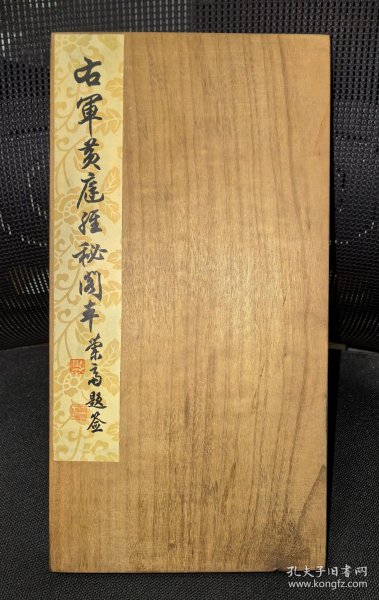 右軍黄庭經秘閣本
榮高題簽
孔夫子旧书网
www.kongfz.com